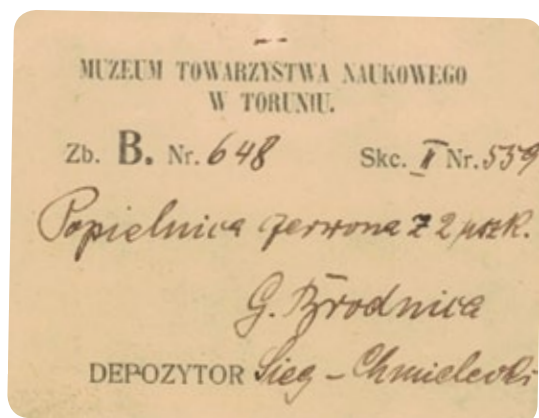 MUZEUM TOWARZYSTWA NAUKOWEGO
W TORUNIU.
Zb. B. Nr. 648 Skc. II Nr. 559
Popielnica czerwona z 2 uszk.
G. Brodnica
DEPOZYTOR Sieg - Chmielewski